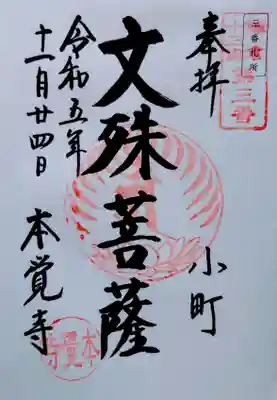 三番札所
第三番
奉拝
小町
文殊菩薩
令和五年
十一月廿四日
本覚寺
本覺寺